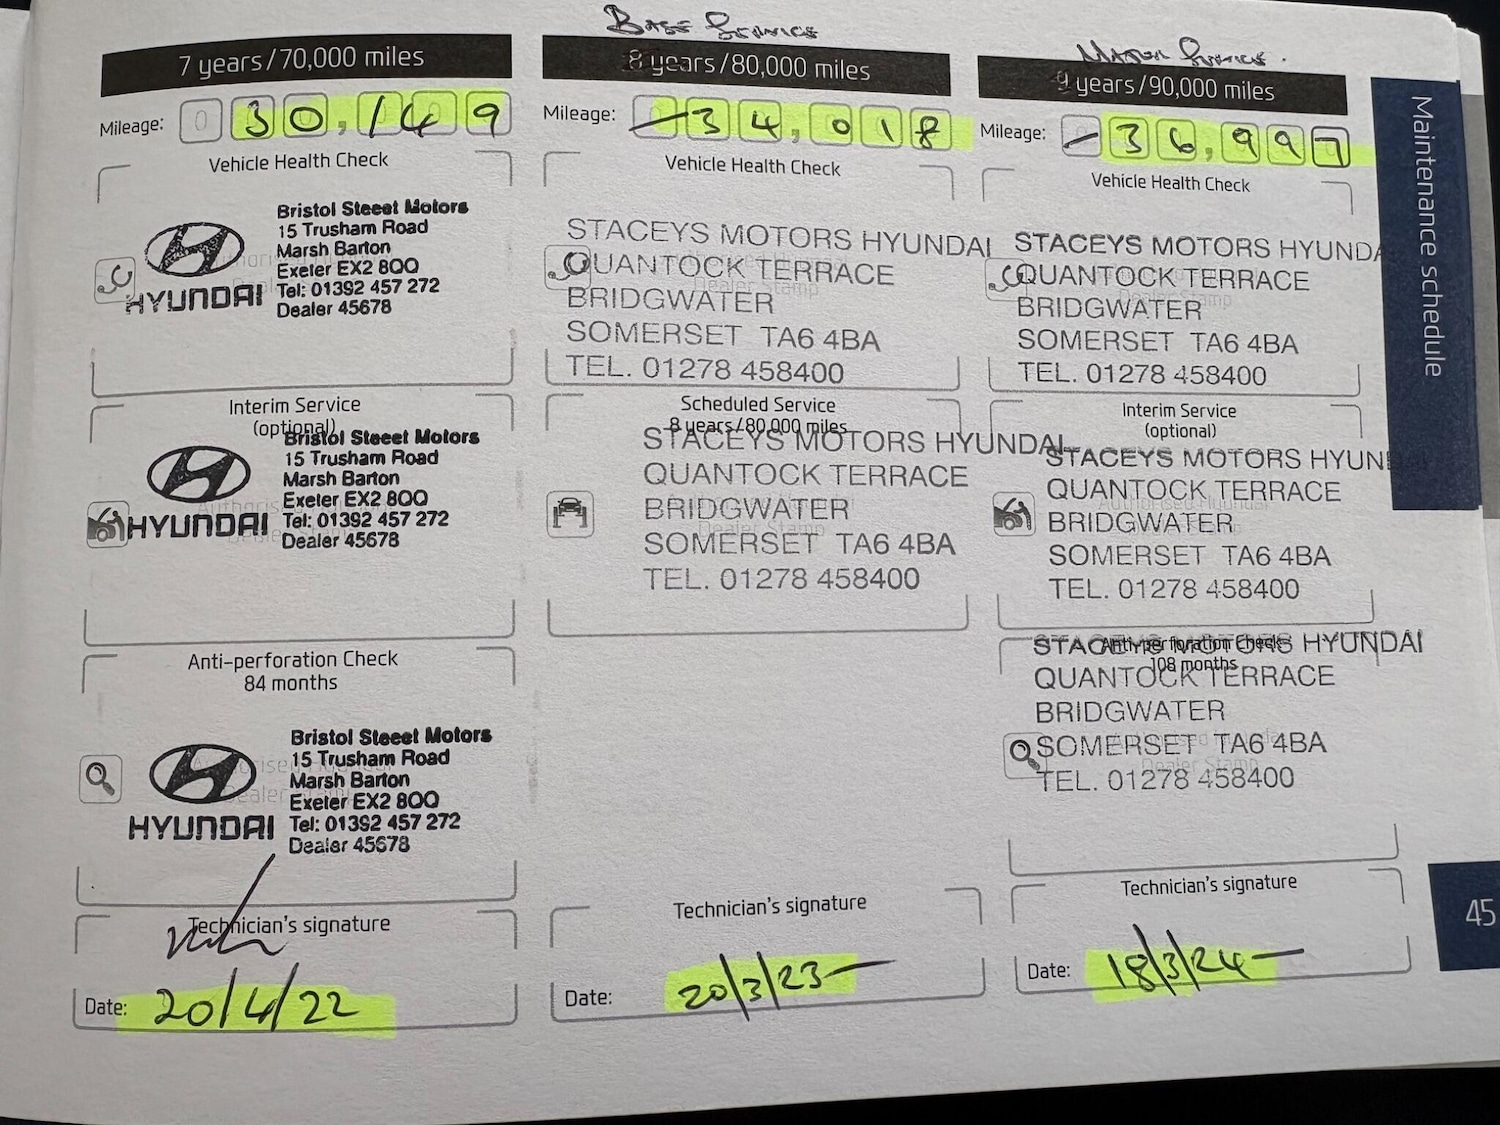 Base Service
Major Service.
7 years/70,000 miles
Mileage: 0 30,149
Vehicle Health Check
Bristol Steeet Motors
15 Trusham Road
Marsh Barton
Exeler EX2 8QQ
HYUNDAI Tel: 01392 457 272
Dealer 45678
Interim Service
(optional)
Bristol Steeet Motors
15 Trusham Road
Marsh Barton
Exeler EX2 8QQ
HYUNDAI Tel: 01392 457 272
Dealer 45678
Anti-perforation Check
84 months
Bristol Steeet Motors
15 Trusham Road
Marsh Barton
Exeler EX2 8QQ
HYUNDAI Tel: 01392 457 272
Dealer 45678
Technician's signature
Date: 20/4/22
8 years/80,000 miles
Mileage: 34,018
Vehicle Health Check
STACEYS MOTORS HYUNDAI
QUANTOCK TERRACE
BRIDGWATER
SOMERSET TA6 4BA
TEL. 01278 458400
Scheduled Service
8 years/80,000 miles
STACEYS MOTORS HYUNDAI
QUANTOCK TERRACE
BRIDGWATER
Dealer Stamp
SOMERSET TA6 4BA
TEL. 01278 458400
Technician's signature
Date: 20/3/23
9 years/90,000 miles
Mileage: 36,997
Vehicle Health Check
STACEYS MOTORS HYUNDA
QUANTOCK TERRACE
Dealer Stamp
BRIDGWATER
SOMERSET TA6 4BA
TEL. 01278 458400
Interim Service
(optional)
STACEYS MOTORS HYUNDAI
QUANTOCK TERRACE
Authorised Hyundai
BRIDGWATER
SOMERSET TA6 4BA
TEL. 01278 458400
Anti-perforation Check
108 months
STACEYS MOTORS HYUNDAI
QUANTOCK TERRACE
BRIDGWATER
SOMERSET TA6 4BA
Dealer Stamp
TEL. 01278 458400
Technician's signature
Date: 18/3/24
Maintenance schedule
45